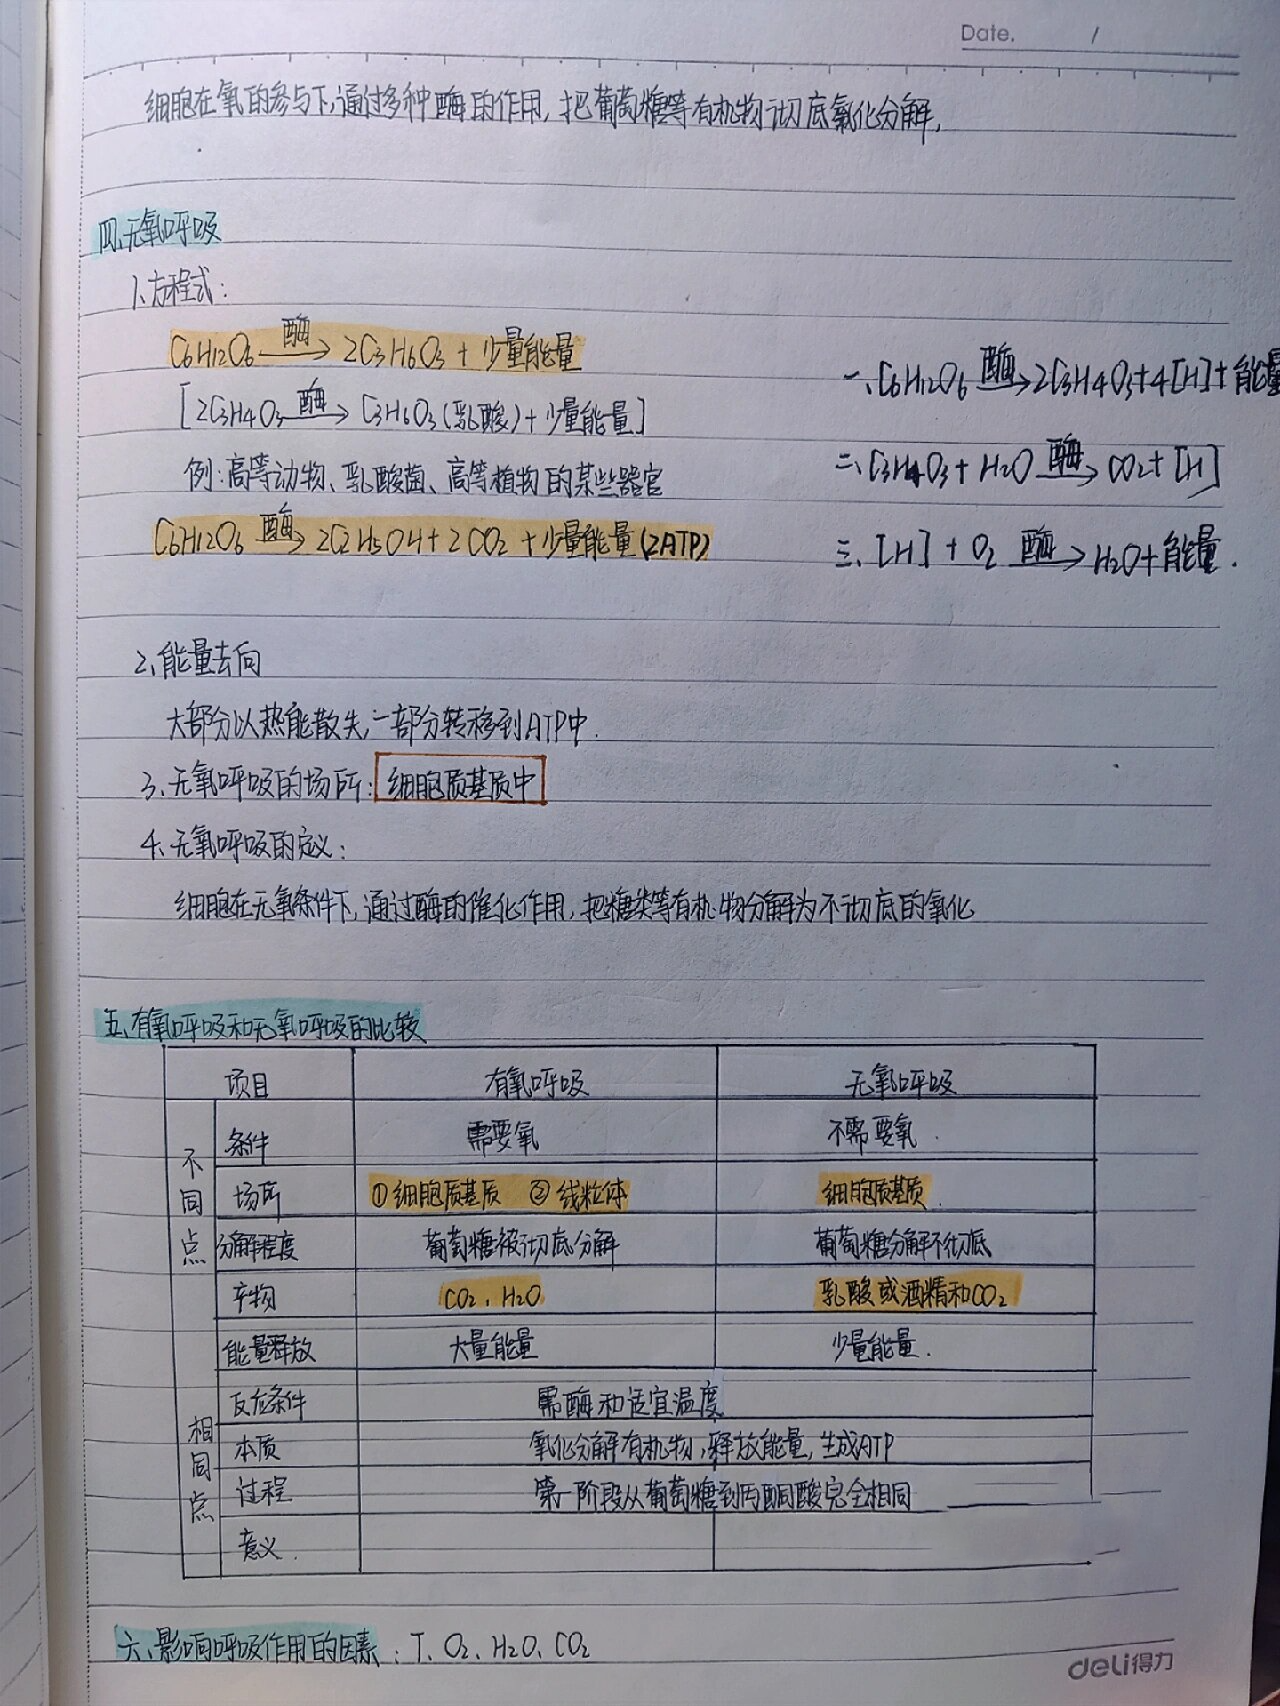 Date. /
细胞在氧的参与下,通过多种酶的作用,把葡萄糖等有机物彻底氧化分解,
四、无氧呼吸
1、方程式:
C6H12O6 酶→ 2C3H6O3 + 少量能量
[2C3H4O3 酶→ C3H6O3(乳酸)+少量能量]
例:高等动物、乳酸菌、高等植物的某些器官
C6H12O6 酶→ 2C2H5OH + 2CO2 + 少量能量(2ATP)
一、C6H12O6 酶→ 2C3H4O3+4[H]+能量
二、C3H4O3 + H2O 酶→ CO2+[H]
三、[H] + O2 酶→ H2O+能量.
2、能量去向
大部分以热能散失,一部分转移到ATP中.
3、无氧呼吸的场所: 细胞质基质中
4、无氧呼吸的定义:
细胞在无氧条件下,通过酶的催化作用,把糖类等有机物分解为不彻底的氧化
五、有氧呼吸和无氧呼吸的比较
项目 有氧呼吸 无氧呼吸
不同点
条件 需要氧 不需要氧.
场所 ①细胞质基质 ②线粒体 细胞质基质.
分解程度 葡萄糖被彻底分解 葡萄糖分解不彻底
产物 CO2、H2O 乳酸或酒精和CO2
能量释放 大量能量 少量能量.
相同点
反应条件 需酶和适宜温度
本质 氧化分解有机物,释放能量,生成ATP
过程 第一阶段从葡萄糖到丙酮酸完全相同
意义.
六、影响呼吸作用的因素: T、O2、H2O、CO2
deli得力